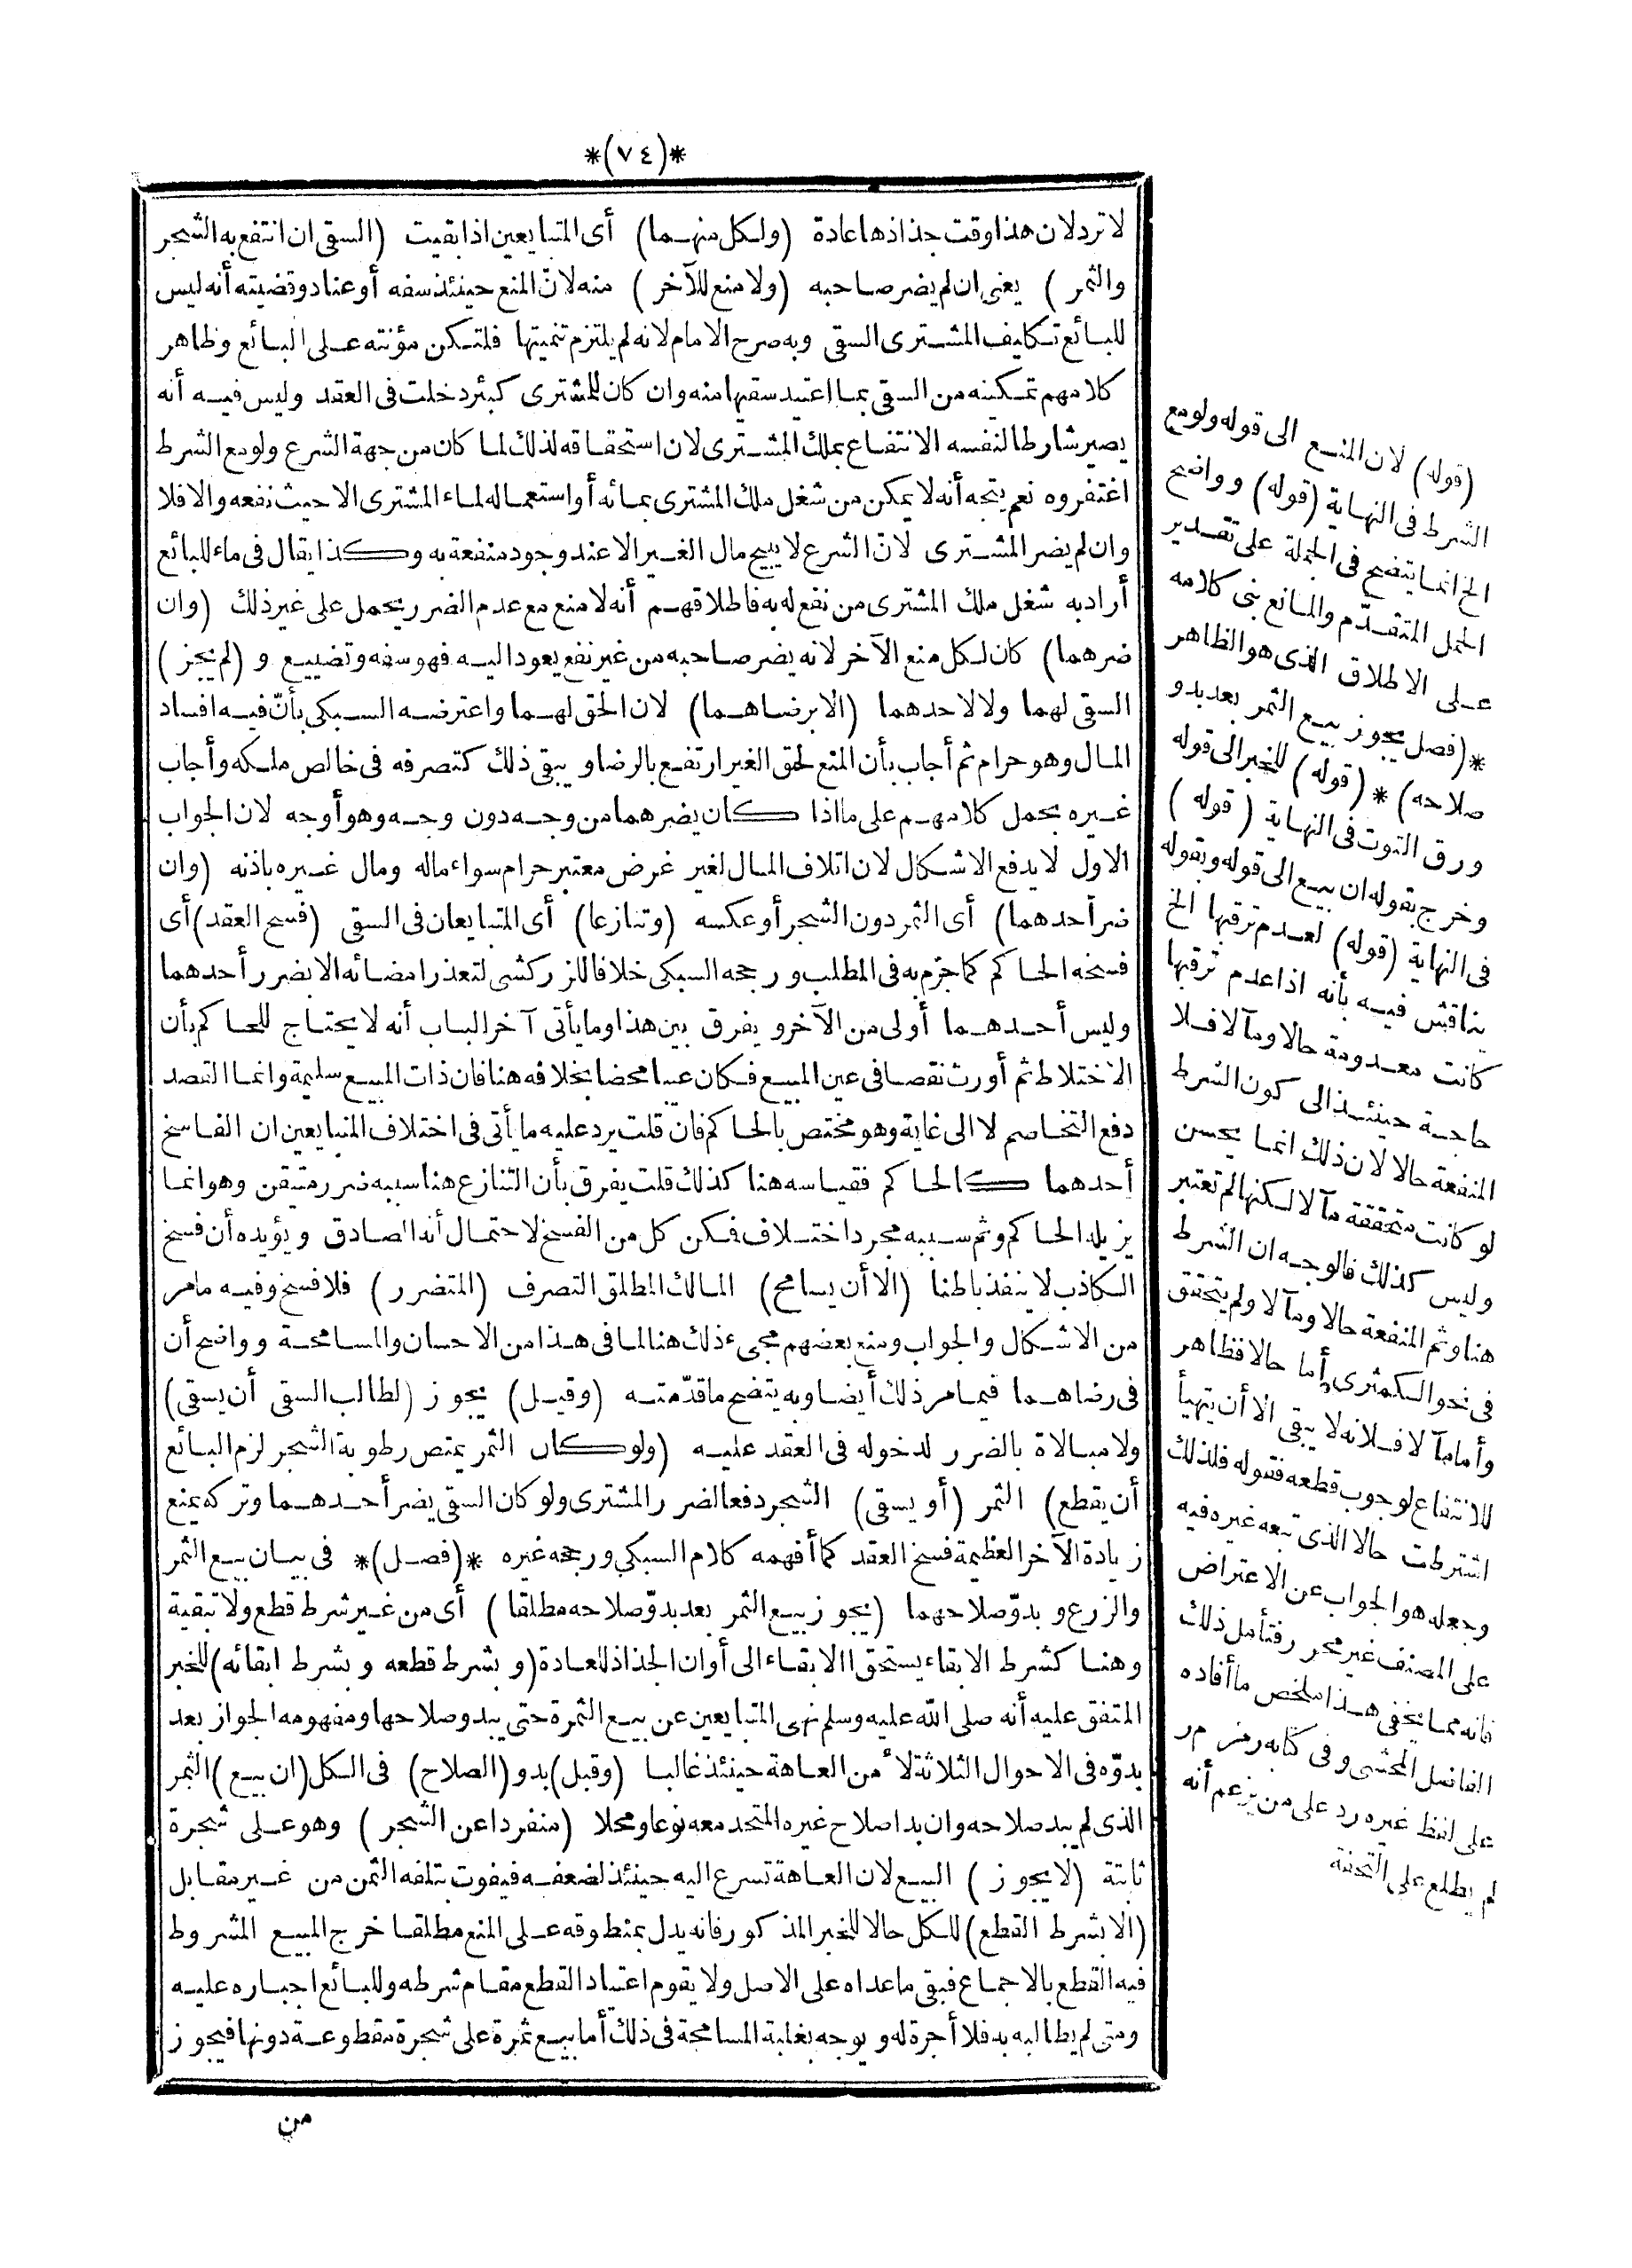 *(٧٤)*
لا ترد لان هذا وقت جذاذها عادة (ولكل منهما) أى المتبايعين اذا بقيت (السقى ان انتفع به الشجر
والثمر) يعنى ان لم يضر صاحبه (ولا منع للآخر) منه لانّ المنع حينئذ سفه أو عناد وقضيته أنه ليس
للبائع تكليف المشترى السقى وبه صرح الامام لانه لم يلتزم تنميتها فلتكن مؤنته على البائع وظاهر
كلامهم تمكينه من السقى بما اعتيد سقيها منه وان كان للمشترى كبئر دخلت فى العقد وليس فيه أنه
يصير شارطا لنفسه الانتفاع بملك المشترى لان استحقاقه لذلك لما كان من جهة الشرع ولو مع الشرط
اغتفروه نعم يتجه أنه لا يمكن من شغل ملك المشترى بمائه أو استعماله لماء المشترى الا حيث نفعه والا فلا
وان لم يضر المشترى لانّ الشرع لا يبيح مال الغير الا عند وجود منفعة به وكذا يقال فى ماء للبائع
أراد به شغل ملك المشترى من نفع له به فاطلاقهم أنه لا منع مع عدم الضرر يحمل على غير ذلك (وان
ضرهما) كان لكل منع الآخر لانه يضر صاحبه من غير نفع يعود اليه فهو سفه وتضييع و (لم يجز)
السقى لهما ولا لاحدهما (الا برضاهما) لان الحق لهما واعترضه السبكى بأنّ فيه افساد
المال وهو حرام ثم أجاب بأن المنع لحق الغير ارتفع بالرضا و يبقى ذلك كتصرفه فى خالص ملكه وأجاب
غيره بحمل كلامهم على ما اذا كان يضرهما من وجه دون وجه وهو أوجه لان الجواب
الاول لا يدفع الاشكال لان اتلاف المال لغير غرض معتبر حرام سواء ماله ومال غيره باذنه (وان
ضر أحدهما) أى الثمر دون الشجر أو عكسه (وتنازعا) أى المتبايعان فى السقى (فسخ العقد) أى
فسخه الحاكم كما جزم به فى المطلب ورجحه السبكى خلافا للزركشى لتعذر امضائه الا بضرر أحدهما
وليس أحدهما أولى من الآخر و يفرق بين هذا وما يأتى آخر الباب أنه لا يحتاج للحاكم بأن
الاختلاط ثم أورث نقصا فى عين المبيع فكان عيبا محضا بخلافه هنا فان ذات المبيع سليمة وانما القصد
دفع التخاصم لا الى غاية وهو مختص بالحاكم فان قلت يرد عليه ما يأتى فى اختلاف المتبايعين ان الفاسخ
أحدهما كالحاكم فقياسه هنا كذلك قلت يفرق بأن التنازع هنا سببه ضرر متيقن وهو انما
يزيله الحاكم وثم سببه مجرد اختلاف فمكن كل من الفسخ لاحتمال أنه الصادق و يؤيده أن فسخ
الكاذب لا ينفذ باطنا (الا أن يسامح) المالك المطلق التصرف (المتضرر) فلا فسخ وفيه ما مر
من الاشكال والجواب ومنع بعضهم مجىء ذلك هنا لما فى هذا من الاحسان والمسامحة وواضح أن
فى رضاهما فيما مر ذلك أيضا وبه يتضح ما قدّمته (وقيل) يجوز (لطالب السقى أن يسقى)
ولا مبالاة بالضرر لدخوله فى العقد عليه (ولو كان الثمر يمتص رطوبة الشجر لزم البائع
أن يقطع) الثمر (أو يسقى) الشجر دفعا لضرر المشترى ولو كان السقى يضر أحدهما وتركه يمنع
زيادة الآخر العظيمة فسخ العقد كما أفهمه كلام السبكى ورجحه غيره *(فصل)* فى بيان بيع الثمر
والزرع و بدوّ صلاحهما (يجوز بيع الثمر بعد بدوّ صلاحه مطلقا) أى من غير شرط قطع ولا تبقية
وهنا كشرط الابقاء يستحق الابقاء الى أوان الجذاذ للعادة (و بشرط قطعه و بشرط ابقائه) للخبر
المتفق عليه أنه صلى الله عليه وسلم نهى المتبايعين عن بيع الثمرة حتى يبدو صلاحها ومفهومه الجواز بعد
بدوّه فى الاحوال الثلاثة لأمن العاهة حينئذ غالبا (وقبل) بدو (الصلاح) فى الكل (ان بيع) الثمر
الذى لم يبد صلاحه وان بدا صلاح غيره المتحد معه نوعا ومحلا (منفردا عن الشجر) وهو على شجرة
ثابتة (لا يجوز) البيع لان العاهة تسرع اليه حينئذ لضعفه فيفوت بتلفه الثمن من غير مقابل
(الا بشرط القطع) للكل حالا للخبر المذكور فانه يدل بمنطوقه على المنع مطلقا خرج المبيع المشروط
فيه القطع بالاجماع فبقى ما عداه على الاصل ولا يقوم اعتياد القطع مقام شرطه وللبائع اجباره عليه
ومتى لم يطالبه به فلا أجرة له و يوجه بغلبة المسامحة فى ذلك أما بيع ثمرة على شجرة مقطوعة دونها فيجوز
من
(قوله) لان المنع الى قوله ولو مع
الشرط فى النهاية (قوله) وواضح
الخ انما يتضح فى الجملة على تقدير
الحمل المتقدّم والمانع بنى كلامه
على الاطلاق الذى هو الظاهر
*(فصل يجوز بيع الثمر بعد بدو
صلاحه)* (قوله) للخبر الى قوله
ورق التوت فى النهاية (قوله)
وخرج بقوله ان بيع الى قوله وبقوله
فى النهاية (قوله) لعدم ترقبها الخ
يناقش فيه بأنه اذا عدم ترقبها
كانت معدومة حالا ومآلا فلا
حاجة حينئذ الى كون الشرط
المنفعة حالا لان ذلك انما يحسن
لو كانت متحققة مآلا لكنها لم تعتبر
وليس كذلك فالوجه ان الشرط
هنا وثم المنفعة حالا ومآلا ولم يتحقق
فى نحو الكمثرى أما حالا فظاهر
وأما مآلا فلانه لا يبقى الا أن يتهيأ
للانتفاع لوجوب قطعه فقوله فلذلك
اشترطت حالا الذى تبعه غيره فيه
وجعله هو الجواب عن الاعتراض
على المصنف غير محرر فتأمل ذلك
فانه مما يخفى هذا ملخص ما أفاده
الفاضل المحشى وفى كتابه رمز م ر
على لفظ غيره رد على من يزعم أنه
لم يطلع على التحفة